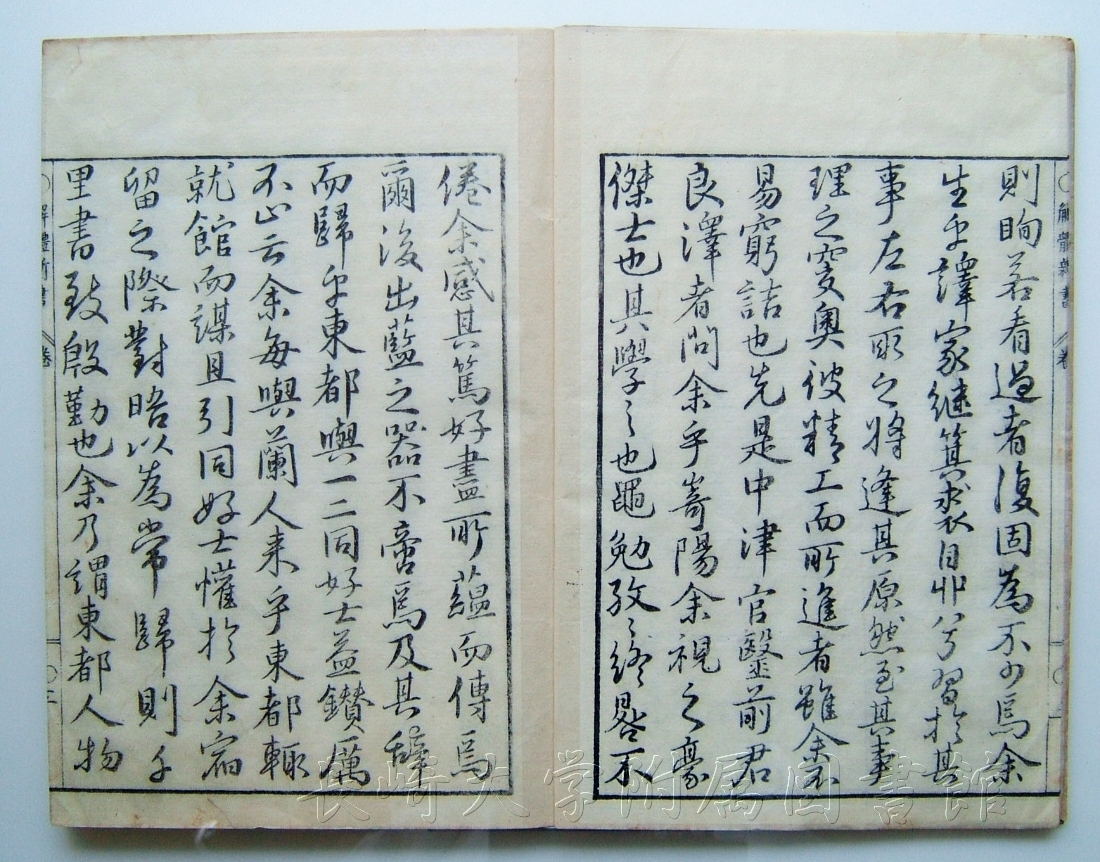 〇解體新書
卷
則眴若看過者復固為不少焉余
生乎譯家継箕裘自丱兮習於其
事左右取之將逢其原然至其事
理之奧彼精工而所進者雖余不
易窮詰也先是中津官醫前君
良澤者問余乎嵜陽余視之豪
傑士也其學〻也黽勉孜〻終晷不
倦余感其篤好盡所蘊而傳焉
爾後出藍之器不啻焉及其辭
而歸乎東都與一二同好士益鑚厲
不止云余每與蘭人来乎東都輙
就館而謀且引同好士懽於余宿
留之際對晤以為常歸則千
里書致殷勤也余乃謂東都人物
〇解體新書
卷
長崎大学附属図書館